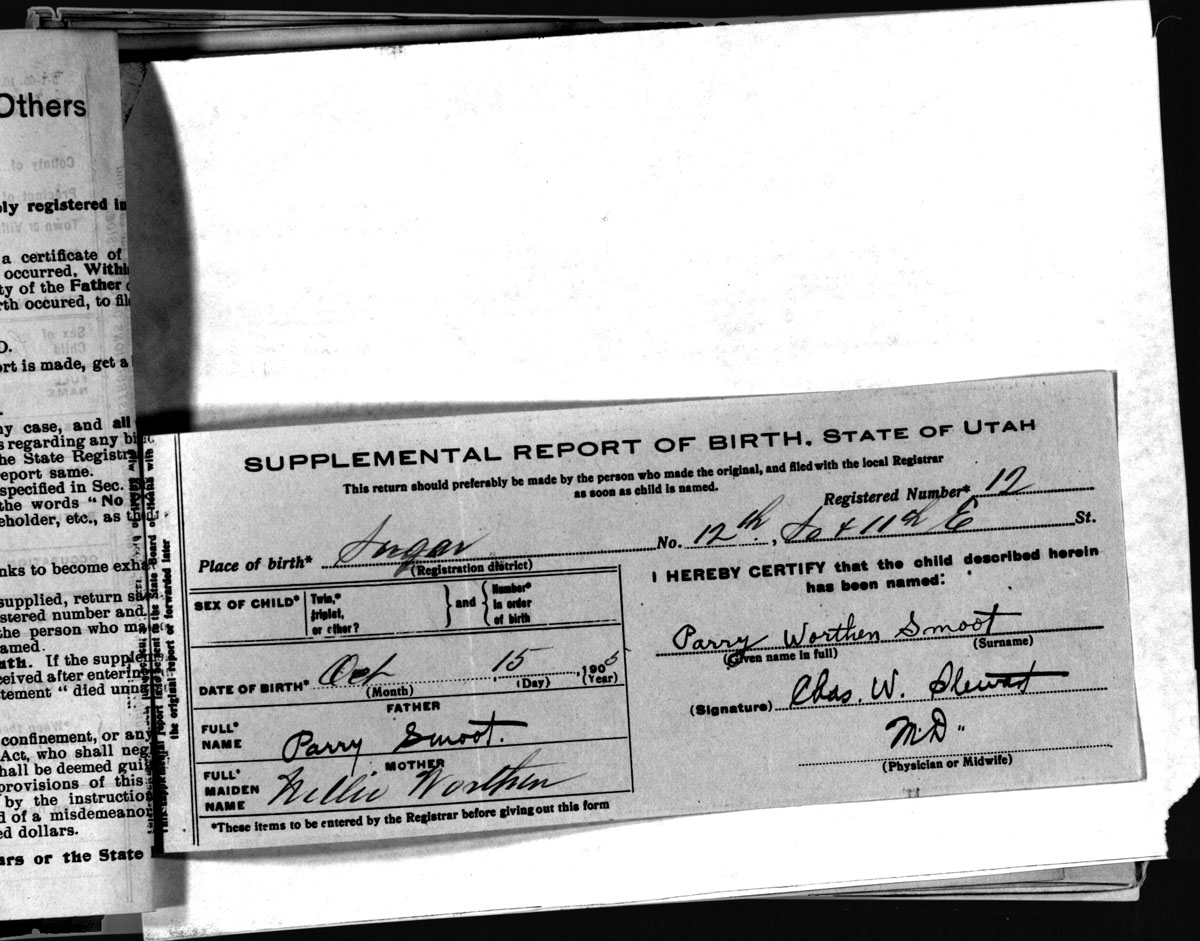 Others
registered in
a certificate of
occurred,
ty of the Father
rth occured, to
ort is made, get a
ny case, and all
s regarding any
he State
eport same.
specified in Sec.
the words "No
eholder, etc., as
nks to become
supplied, return
stered number and
the person who
amed.
If the
ceived after
tement "died
confinement, or
Act, who shall
hall be deemed
provisions of this
by the
d of a misdemeanor
ed dollars.
ars or the State
the original report or forwarded later
SUPPLEMENTAL REPORT OF BIRTH, STATE OF UTAH
This return should preferably be made by the person who made the original, and filed with the local Registrar
as soon as child is named.
Registered Number* 12
Place of birth* Sugar No. 12th, So & 11th E St.
(Registration district)
SEX OF CHILD* Twin,* triplet, or other? and Number* in order of birth
DATE OF BIRTH* Oct 15, 1905
(Month) (Day) (Year)
FATHER
FULL* NAME Parry Smoot.
MOTHER
FULL* MAIDEN NAME Nellie Worthen
*These items to be entered by the Registrar before giving out this form
I HEREBY CERTIFY that the child described herein
has been named:
Parry Worthen Smoot
(Given name in full) (Surname)
(Signature) Chas. W. Stewart
M.D"
(Physician or Midwife)